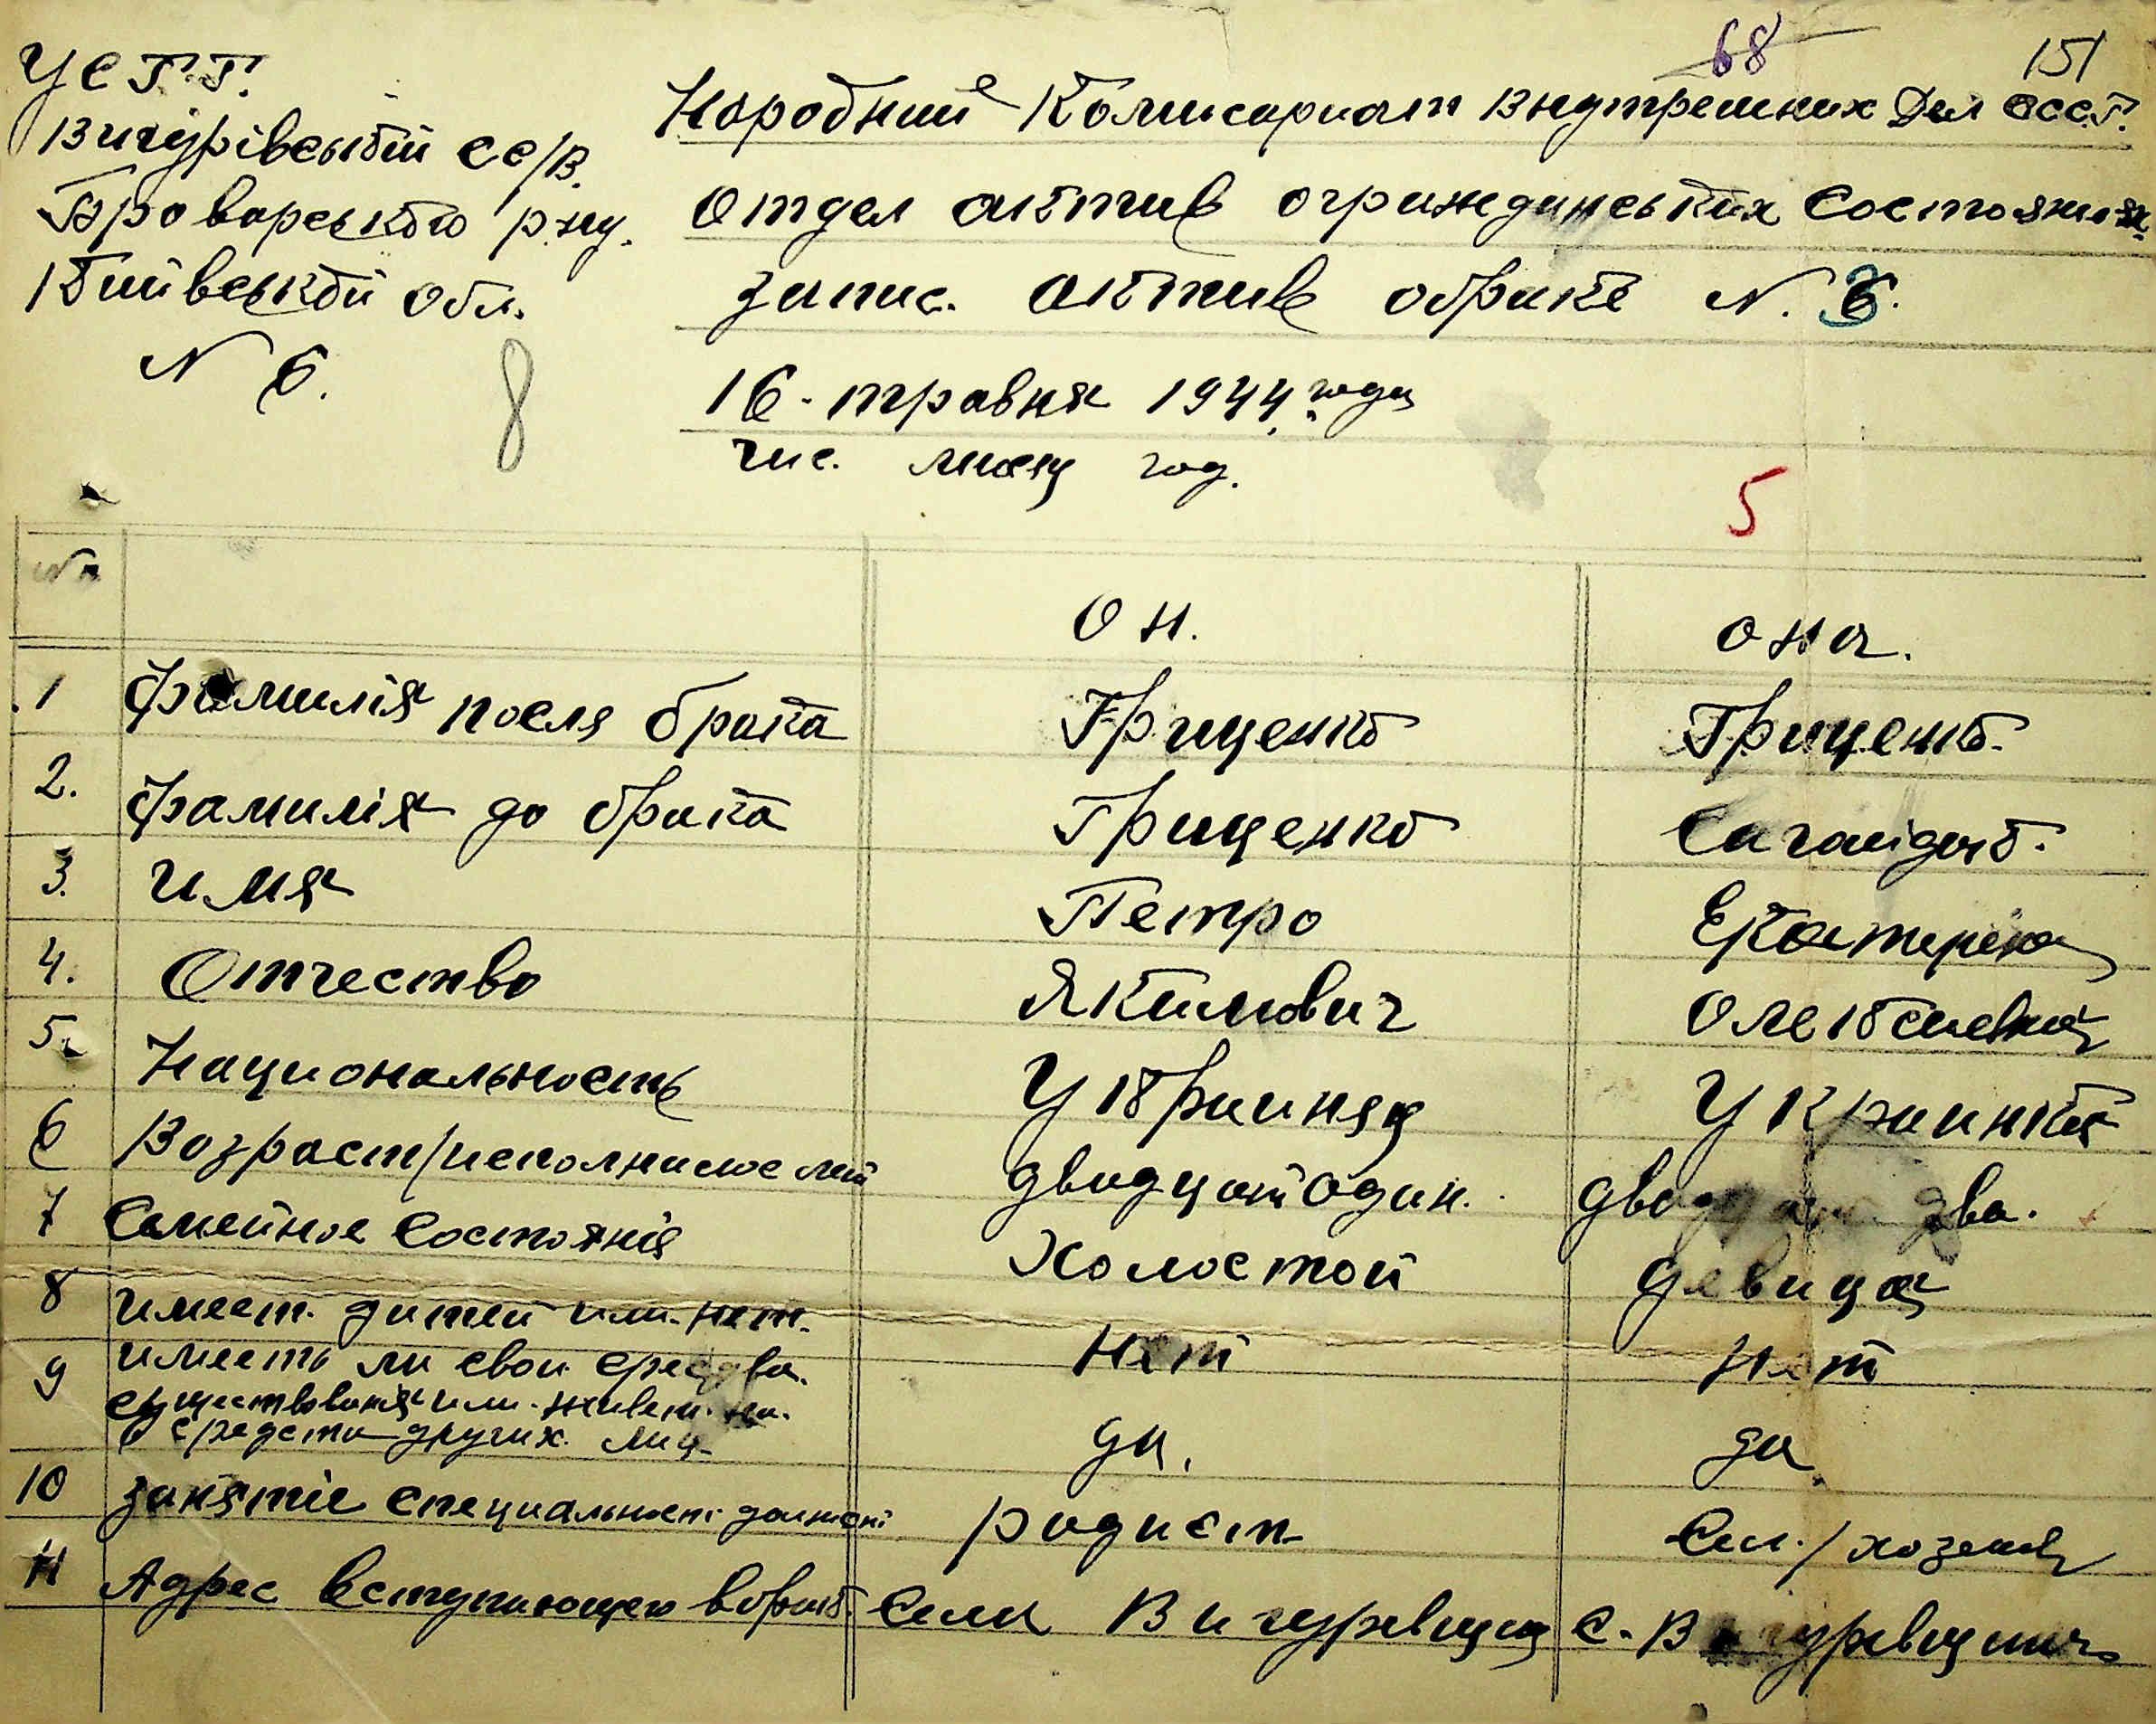 68 151
УСРР.
Вигурівський сс/в.
Броварського р-ну.
Київськой обл.
N 6. 8
Народний Комисариат Внутрешних Дел СССР.
Отдел активе огражданських состояния
запис. активе обраке N. 6.
16 - травня 1944 года
чис. месяц год.
5
№
Он. она.
1 фамилія после брака Гриценко Гриценко.
2. фамилія до брака Гриценко Сагайдако.
3. имя Петро Екатерина
4. Отчество Якимович Олексіевна
5. Национальность Украиняц Украинка
6 Возраст/исполнилось лет двадцат один. двадцат два.
7 Семейное состоянія Холостой девица
8 имеет. дитей или. нет. нет нет
9 имееть ли свои средства.
существованія или. живет. на.
средсты других. лиц- да, да,
10 занятіе специальност должност радист Сел./хозяев
11 Адрес вступающего вбрак. Села Вигуревщина С. Вигуревщина